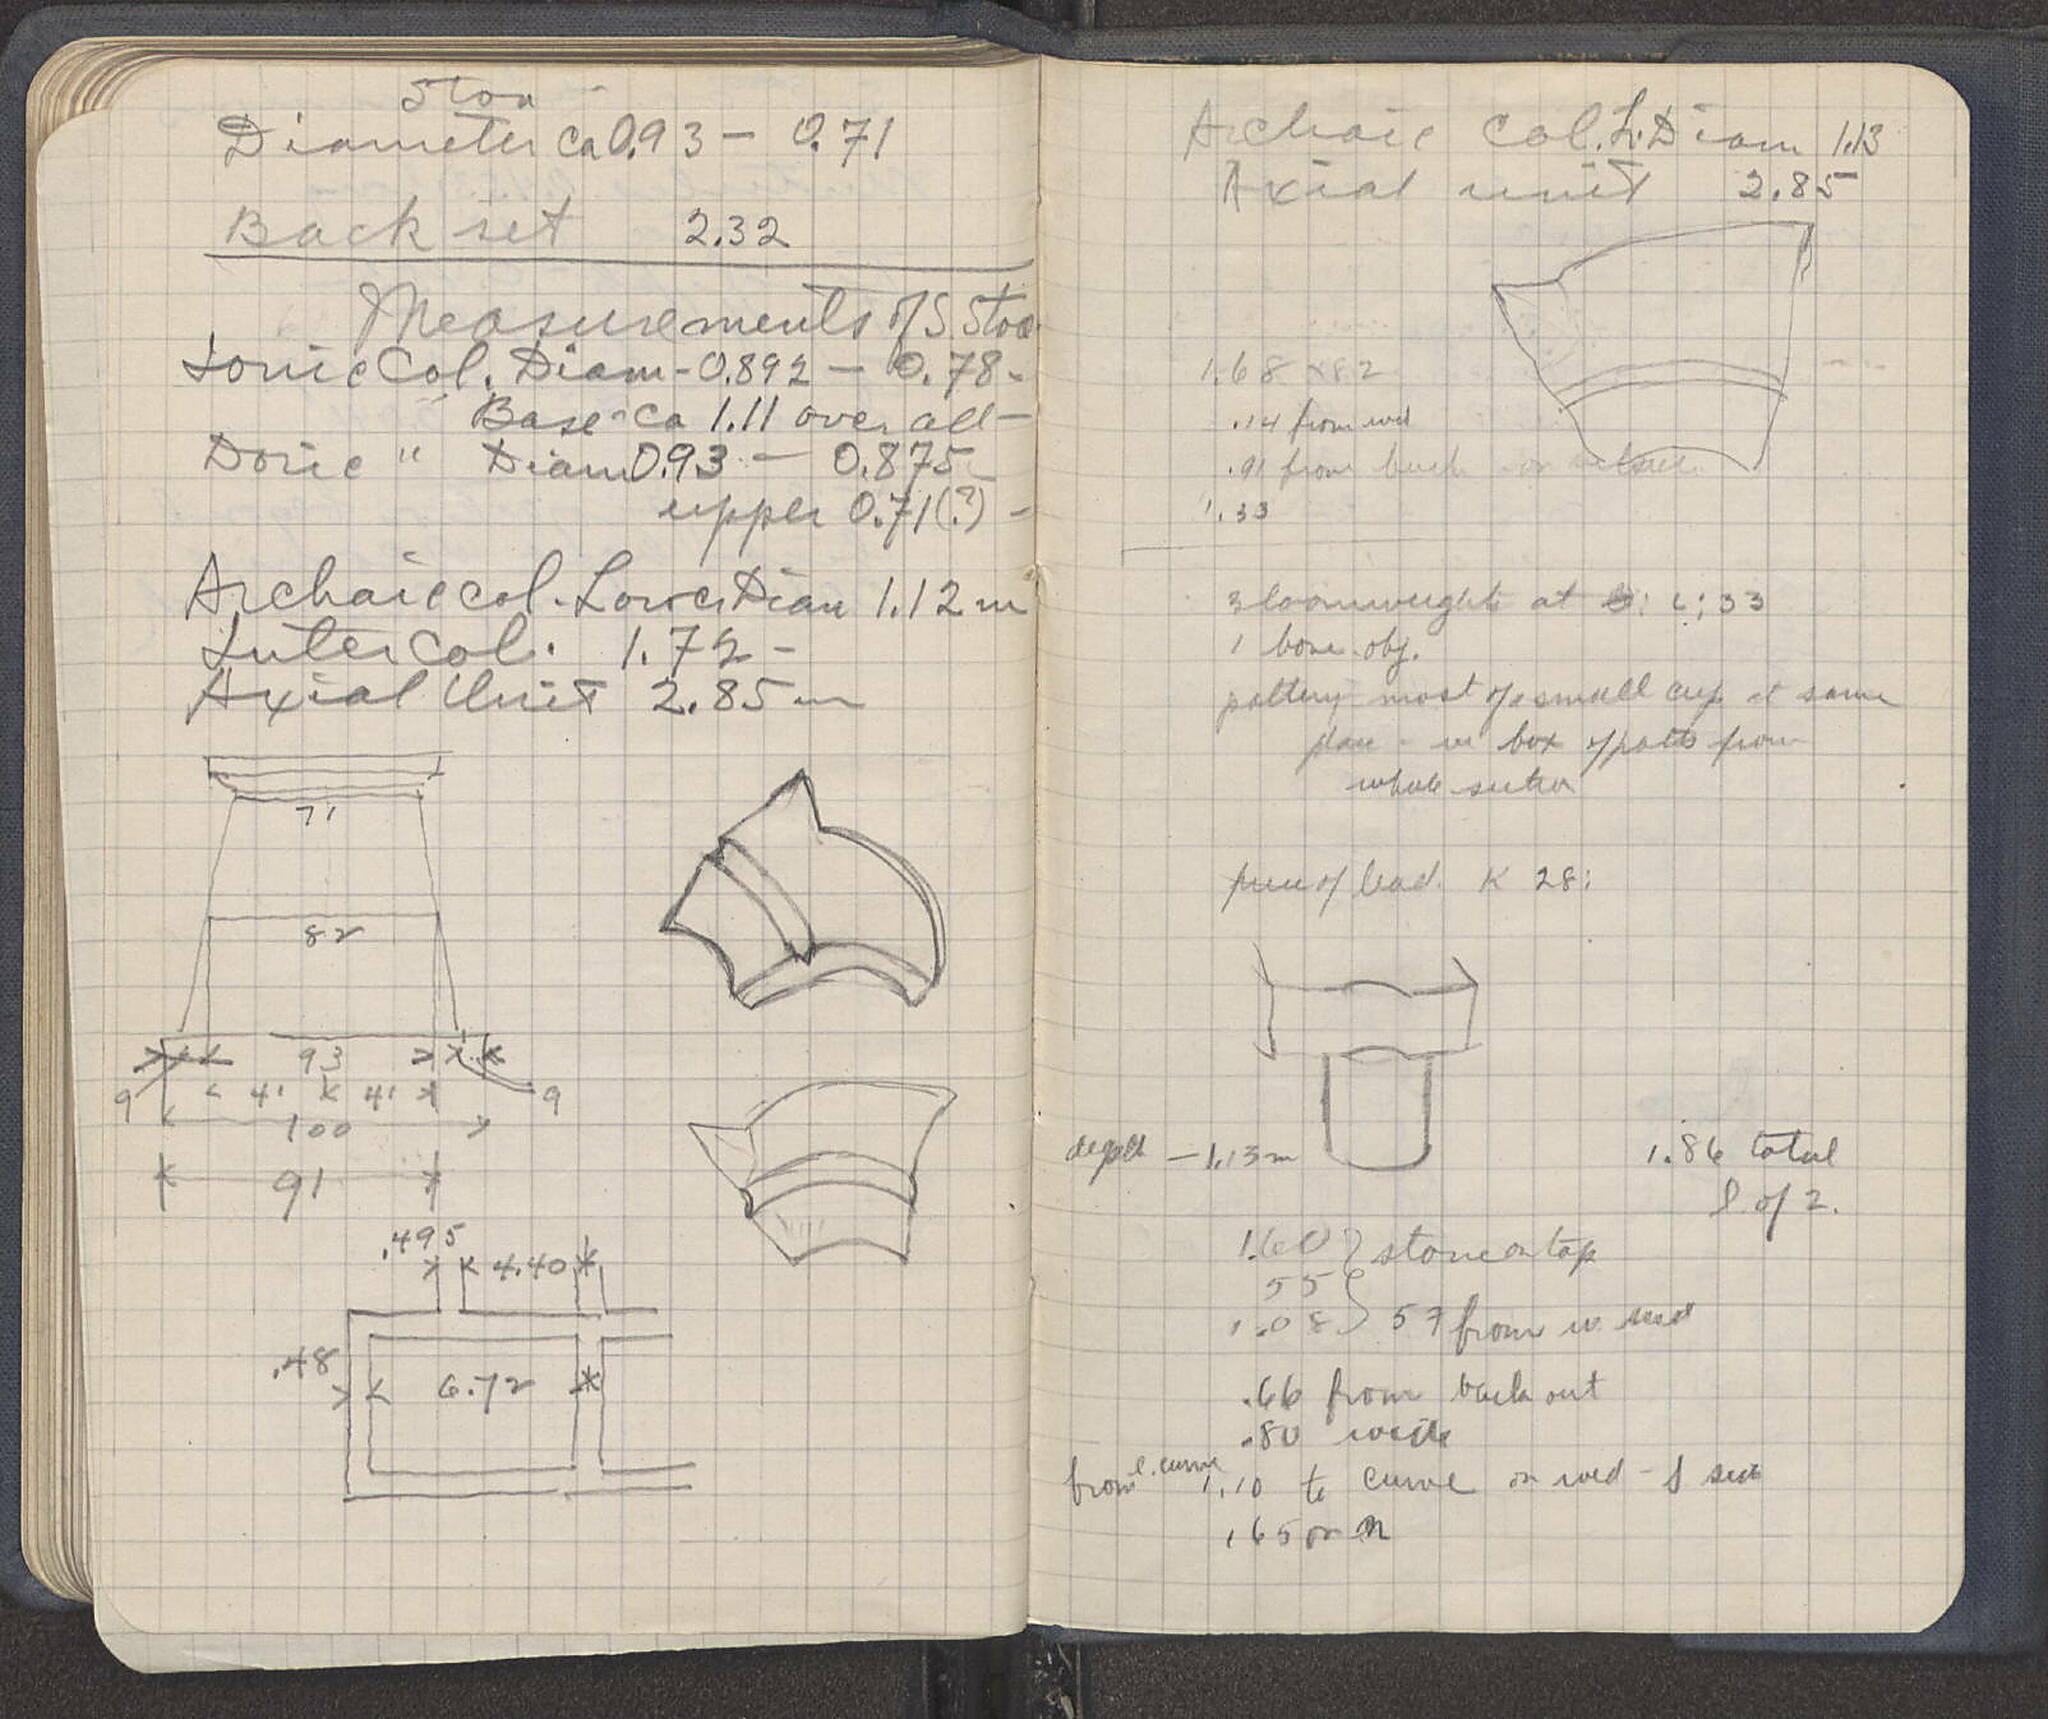 Stoa
Diameter ca 0.93 — 0.71
Back set 2.32
Measurements of S. Stoa
Ionic Col. Diam - 0.892 — 0.78 -
" Base - ca 1.11 over all —
Doric " Diam 0.93 — 0.875
upper 0.71(?) -
Archaic col. Lower Diam 1.12 m
Inter Col. 1.72 -
Axial Unit 2.85 m
71
82
93
9 41 41 9
100
91
.495 4.40
.48 6.72
Archaic Col. L. Diam 1.13
Axial unit 2.85
1.68 × 82
.14 from
.91 from back or
1.33
3 loomweights at : ; 33
1 bone obj.
pottery most of small cup at same
place - in box of potts from
whole section
piece of lead. K 28:
depth — 1.13 m
1.86 total
l of 2.
1.60 } stone on top
55
1.08 } 57 from w.
.66 from back out
.80 wide
from l. curve 1.10 to curve on
.65 on n